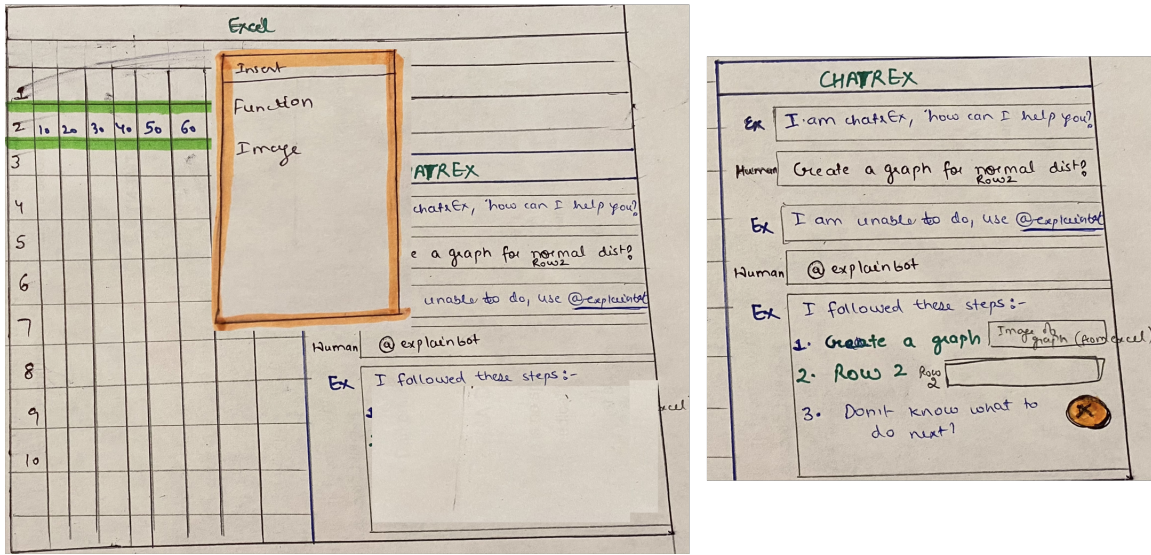 Excel
Insert
Function
Image
1
2 10 20 30 40 50 60
3
4
5
6
7
8
9
10
ATREX
chatrEx, "how can I help you?
e a graph for normal dist?
Row2
unable to do, use @explainbot
Human @explainbot
Ex I followed these steps:-
1
xcel
CHATREX
Ex I am chatrEx, "how can I help you?
Human Create a graph for normal dist?
Row2
Ex I am unable to do, use @explainbot
Human @explainbot
Ex I followed these steps:-
1. Create a graph Image of graph (from excel)
2. Row 2 Row 2
3. Don't know what to
do next?
X